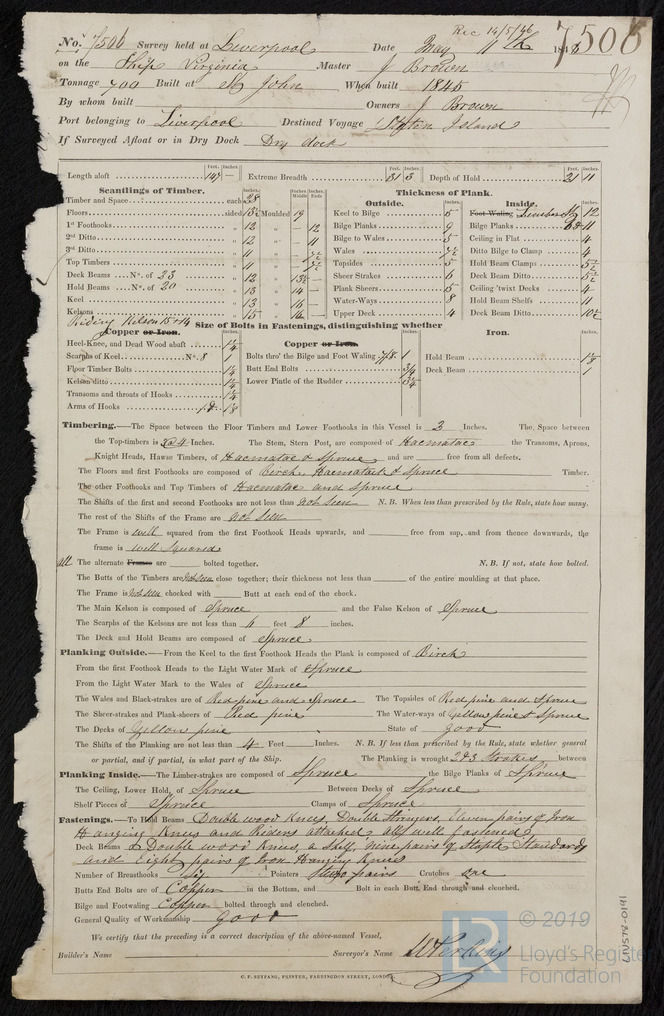 Rec 14/5/46
No. 7506 Survey held at Liverpool Date May 11th 184 7506
on the Ship Virginia Master J Brown
Tonnage 700 Built at St John When built 1845
By whom built Owners J Brown
Port belonging to Liverpool Destined Voyage Island
If Surveyed Afloat or in Dry Dock Dry dock
Feet. Inches. Feet. Inches. Feet. Inches.
Length aloft 147 — Extreme Breadth 31 3 Depth of Hold 21 11
Scantlings of Timber. Thickness of Plank.
Outside. Inside.
Timber and Space each 28
Floors sided 13½ Moulded 19
1st Foothooks " 12 " — 12
2nd Ditto " 12 " — 11
3rd Ditto " 11 "
Top Timbers " 11 "
Deck Beams No. of 23 " 12 13½ —
Hold Beams No. of 20 " 13 14
Keel " 13 16
Kelsons " 15 16
Riding Kelson 15 x 14
Keel to Bilge 5
Bilge Planks 9
Bilge to Wales 5
Wales
Topsides
Sheer Strakes 6
Plank Sheers 5
Water-Ways 8
Upper Deck 4
Foot Waling Limber St 12
Bilge Planks 11
Ceiling in Flat 4
Ditto Bilge to Clamp 4
Hold Beam Clamps 5½
Deck Beam Ditto 5½
Ceiling 'twixt Decks 4
Hold Beam Shelfs 11
Deck Beam Ditto 10½
Size of Bolts in Fastenings, distinguishing whether
Copper or Iron. Copper or Iron. Iron.
Heel-Knee, and Dead Wood abaft 1¼
Scarphs of Keel No. 8 1
Floor Timber Bolts 1¼
Kelson ditto 1¼
Transoms and throats of Hooks 1¼
Arms of Hooks 1⅛
Bolts thro' the Bilge and Foot Waling 7/8 1
Butt End Bolts 3/4
Lower Pintle of the Rudder 3¼
Hold Beam 1⅛
Deck Beam 1
Timbering.—The Space between the Floor Timbers and Lower Foothooks in this Vessel is 3 Inches. The Space between
the Top-timbers is 3 a 4 Inches. The Stem, Stern Post, are composed of Hacmatac the Transoms, Aprons,
Knight Heads, Hawse Timbers, of Hacmatac & Spruce and are free from all defects.
The Floors and first Foothooks are composed of Birch, Hacmatack & Spruce Timber.
The other Foothooks and Top Timbers of Hacmatac and Spruce
The Shifts of the first and second Foothooks are not less than not seen N. B. When less than prescribed by the Rule, state how many.
The rest of the Shifts of the Frame are not seen
The Frame is well squared from the first Foothook Heads upwards, and free from sap, and from thence downwards, the
frame is well squared
all The alternate Frames are bolted together. N. B. If not, state how bolted.
The Butts of the Timbers are not seen close together; their thickness not less than of the entire moulding at that place.
The Frame is not seen chocked with Butt at each end of the chock.
The Main Kelson is composed of Spruce and the False Kelson of Spruce
The Scarphs of the Kelsons are not less than 6 feet 8 inches.
The Deck and Hold Beams are composed of Spruce
Planking Outside.—From the Keel to the first Foothook Heads the Plank is composed of Birch
From the first Foothook Heads to the Light Water Mark of Spruce
From the Light Water Mark to the Wales of Spruce
The Wales and Black-strakes are of Red pine and Spruce The Topsides of Red pine and Spruce
The Sheer-strakes and Plank-sheers of Red pine The Water-ways of Yellow pine & Spruce
The Decks of Yellow pine State of good
The Shifts of the Planking are not less than 4 Feet Inches. N. B. If less than prescribed by the Rule, state whether general
or partial, and if partial, in what part of the Ship. The Planking is wrought 2 & 3 Strakes between
Planking Inside.—The Limber-strakes are composed of Spruce the Bilge Planks of Spruce
The Ceiling, Lower Hold, of Spruce Between Decks of Spruce
Shelf Pieces of Spruce Clamps of Spruce
Fastenings.—To Hold Beams Double wood Knees, Double Stringers, Eleven pairs of Iron
Hanging Knees and Riders attached all well fastened
Deck Beams Double wood Knees, a Shelf, nine pairs of Staple Standards
and Eight pairs of Iron Hanging Knees
Number of Breasthooks Six Pointers two pairs Crutches one
Butts End Bolts are of Copper in the Bottom, and Bolt in each Butt End through and clenched.
Bilge and Footwaling Copper bolted through and clenched.
General Quality of Workmanship good
We certify that the preceding is a correct description of the above-named Vessel,
Builder's Name Surveyor's Name
C. F. SEYFANG, PRINTER, FARRINGDON STREET, LONDON.
LR © 2019
Lloyd's Register
Foundation